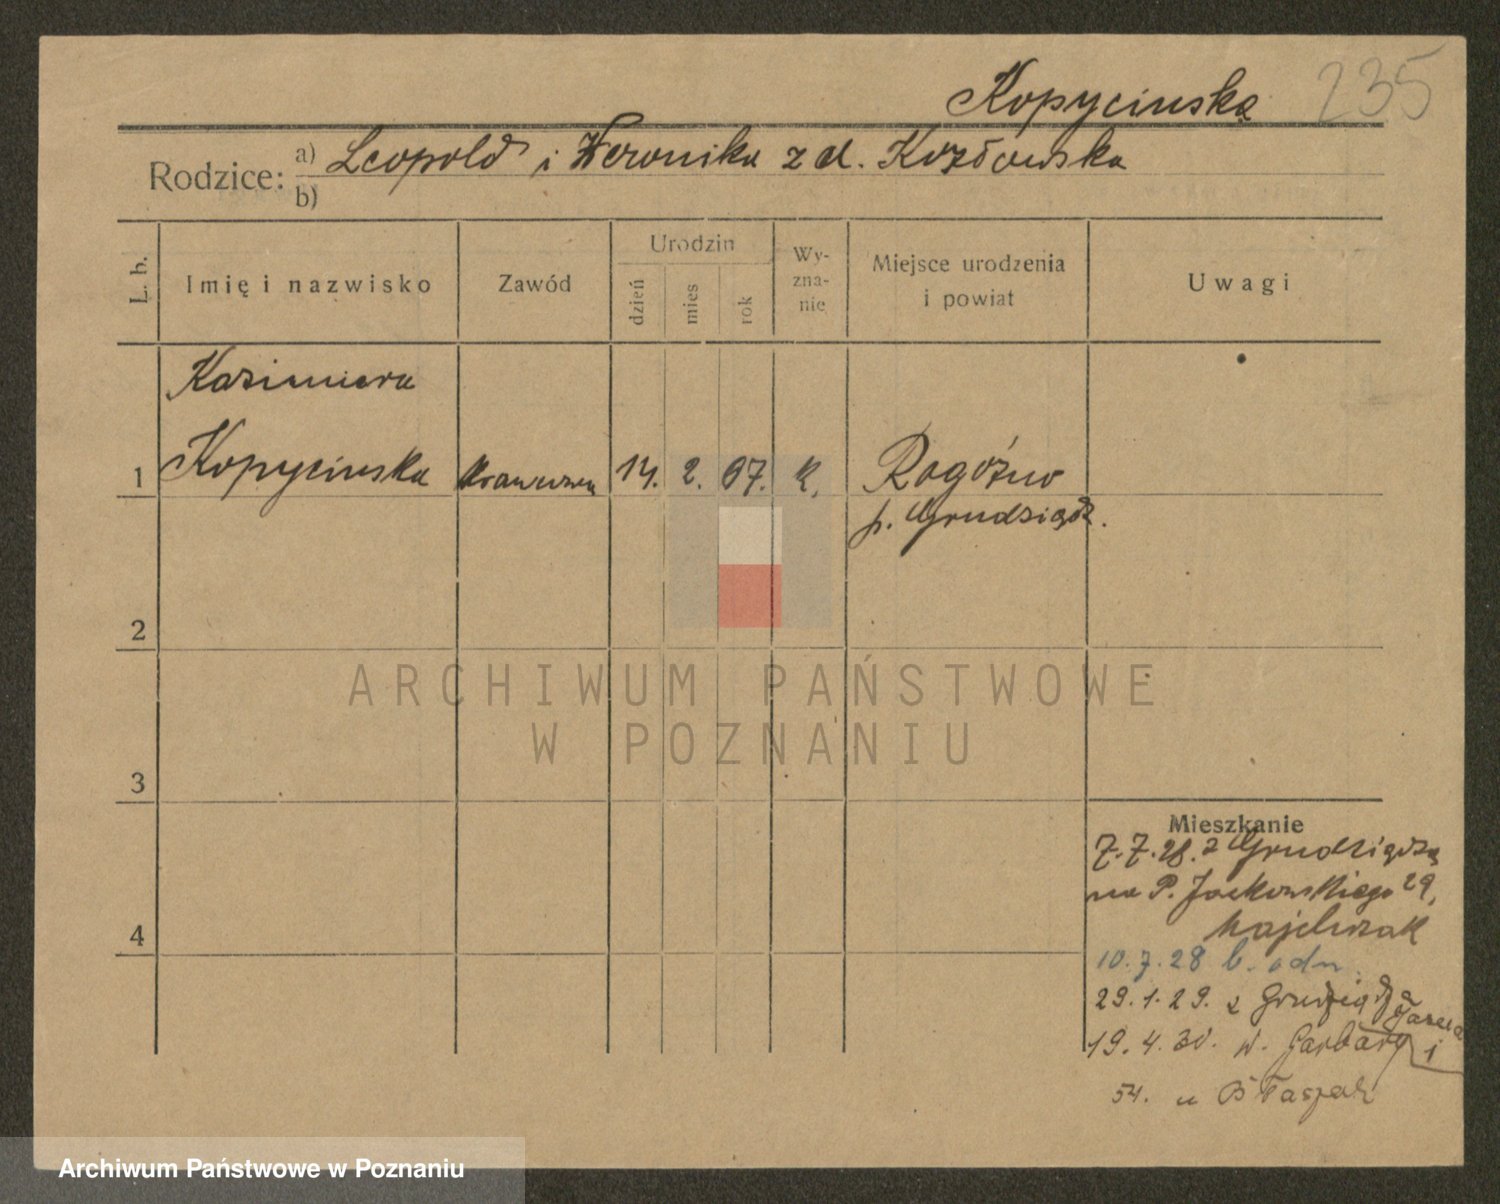 Kopycinska 235
Rodzice: a) Leopold i Weronika z d. Kozłowska
b)
L. b. Imię i nazwisko Zawód Urodzin dzień mies rok Wy-zna-nie Miejsce urodzenia i powiat Uwagi
Kazimiera
1 Kopycinska 14. 2. 07. k. Rogóźno
p. Grudziądz.
2
ARCHIWUM PAŃSTWOWE
W POZNANIU
3
Mieszkanie
7.7.28. z Grudziądza
na P. Jackowskiego 29,
Majchrzak
4
10.7.28 b. odm.
29.1.29. z Grudziądza
19.4.30. w. Garbary
54. u Błaszak
Archiwum Państwowe w Poznaniu